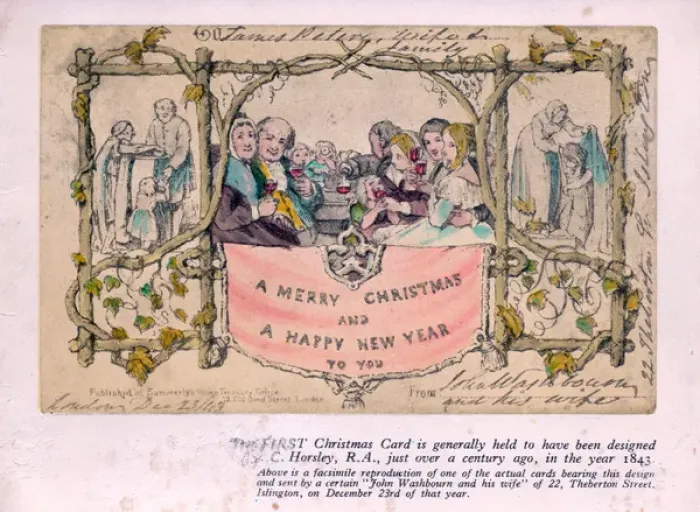 To James Peters, Wife &
family
A MERRY CHRISTMAS
AND
A HAPPY NEW YEAR
TO YOU
Published at Summerly's Home Treasury Office
12 Old Bond Street London
From John Washbourn
and his wife
22 Theberton St Islington
London Dec 23/43
The FIRST Christmas Card is generally held to have been designed
C. Horsley, R.A., just over a century ago, in the year 1843.
Above is a facsimile reproduction of one of the actual cards bearing this design
and sent by a certain "John Washbourn and his wife" of 22, Theberton Street,
Islington, on December 23rd of that year.